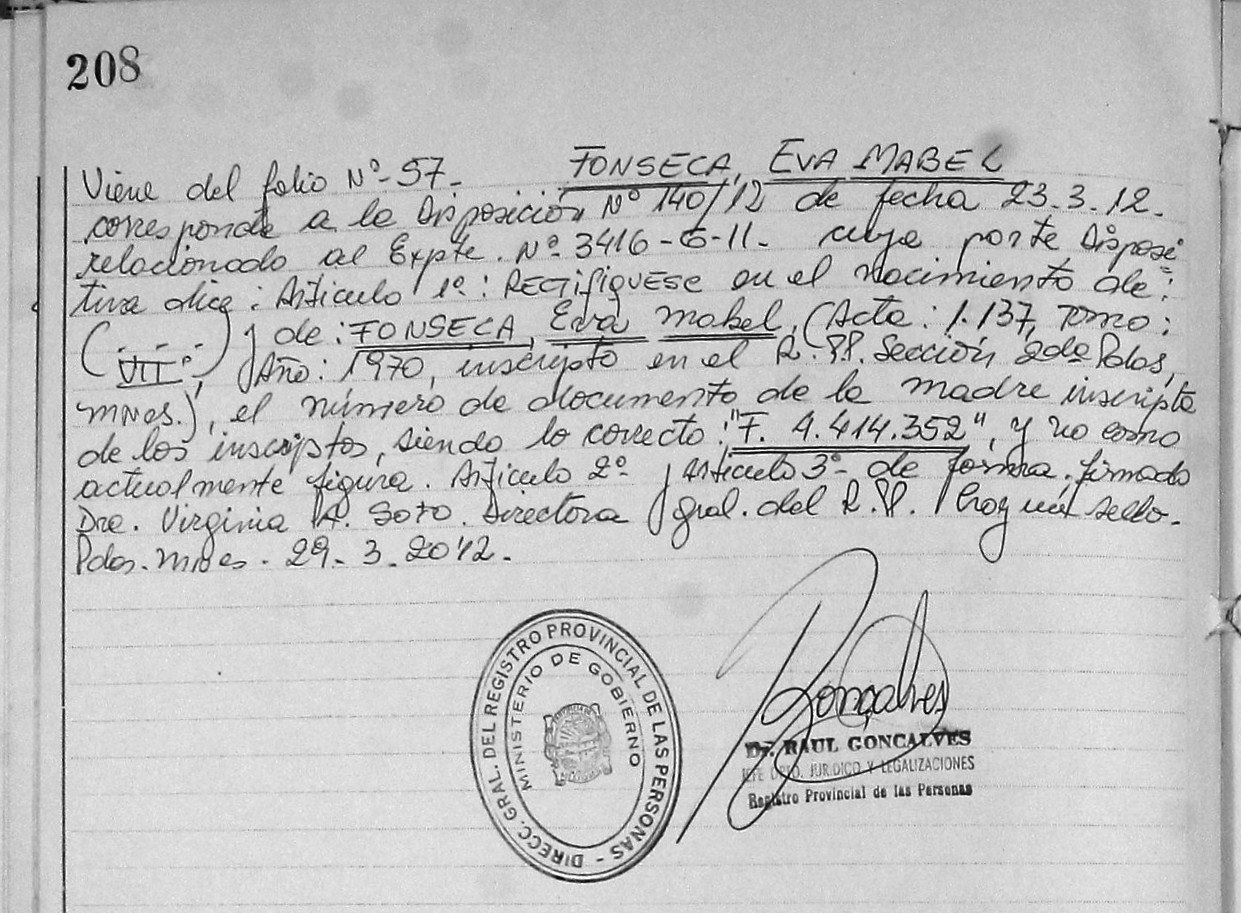 208
Viene del folio Nº 57- FONSECA, EVA MABEL
corresponde a la Disposición Nº 140/12 de fecha 23.3.12.
relacionado al Expte. Nº 3416-6-11- cuya parte Disposi
tiva dice: Artículo 1º: RECTIFIQUESE en el nacimiento de:
(. - . -) y de: FONSECA, Eva Mabel, (Acta: 1.137, Tomo:
VII º, Año: 1970, inscripto en el R.PP. Sección 2da Pdas,
mnes.), el número de documento de la madre inscripta
de los inscriptos, siendo lo correcto: "F. 4.414.352", y no como
actualmente figura. Artículo 2º y Artículo 3º- de forma. firmado
Dra. Virginia A. Soto. Directora gral. del R.P. hay un sello.
Pdas. Mnes. 29-3-2012.
DIRECC. GRAL. DEL REGISTRO PROVINCIAL DE LAS PERSONAS -
MINISTERIO DE GOBIERNO
Gonçalves
Dr. RAUL GONCALVES
JEFE DPTO. JURIDICO Y LEGALIZACIONES
Registro Provincial de las Personas